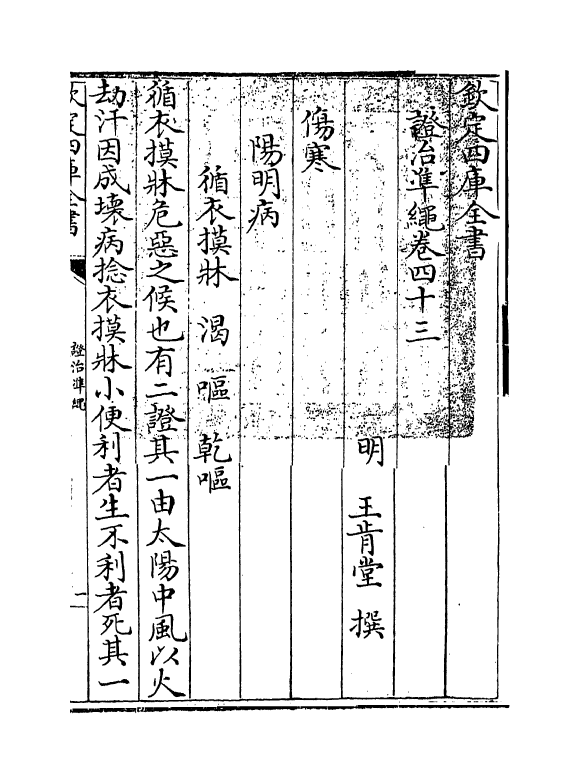 欽定四庫全書
證治準繩卷四十三
明　王肯堂　撰
傷寒
陽明病
循衣摸牀　渴　嘔　乾嘔
循衣摸牀危惡之候也有二證其一由太陽中風以火
劫汗因成壊病捻衣摸牀小便利者生不利者死其一
欽定四庫全書
證治準繩